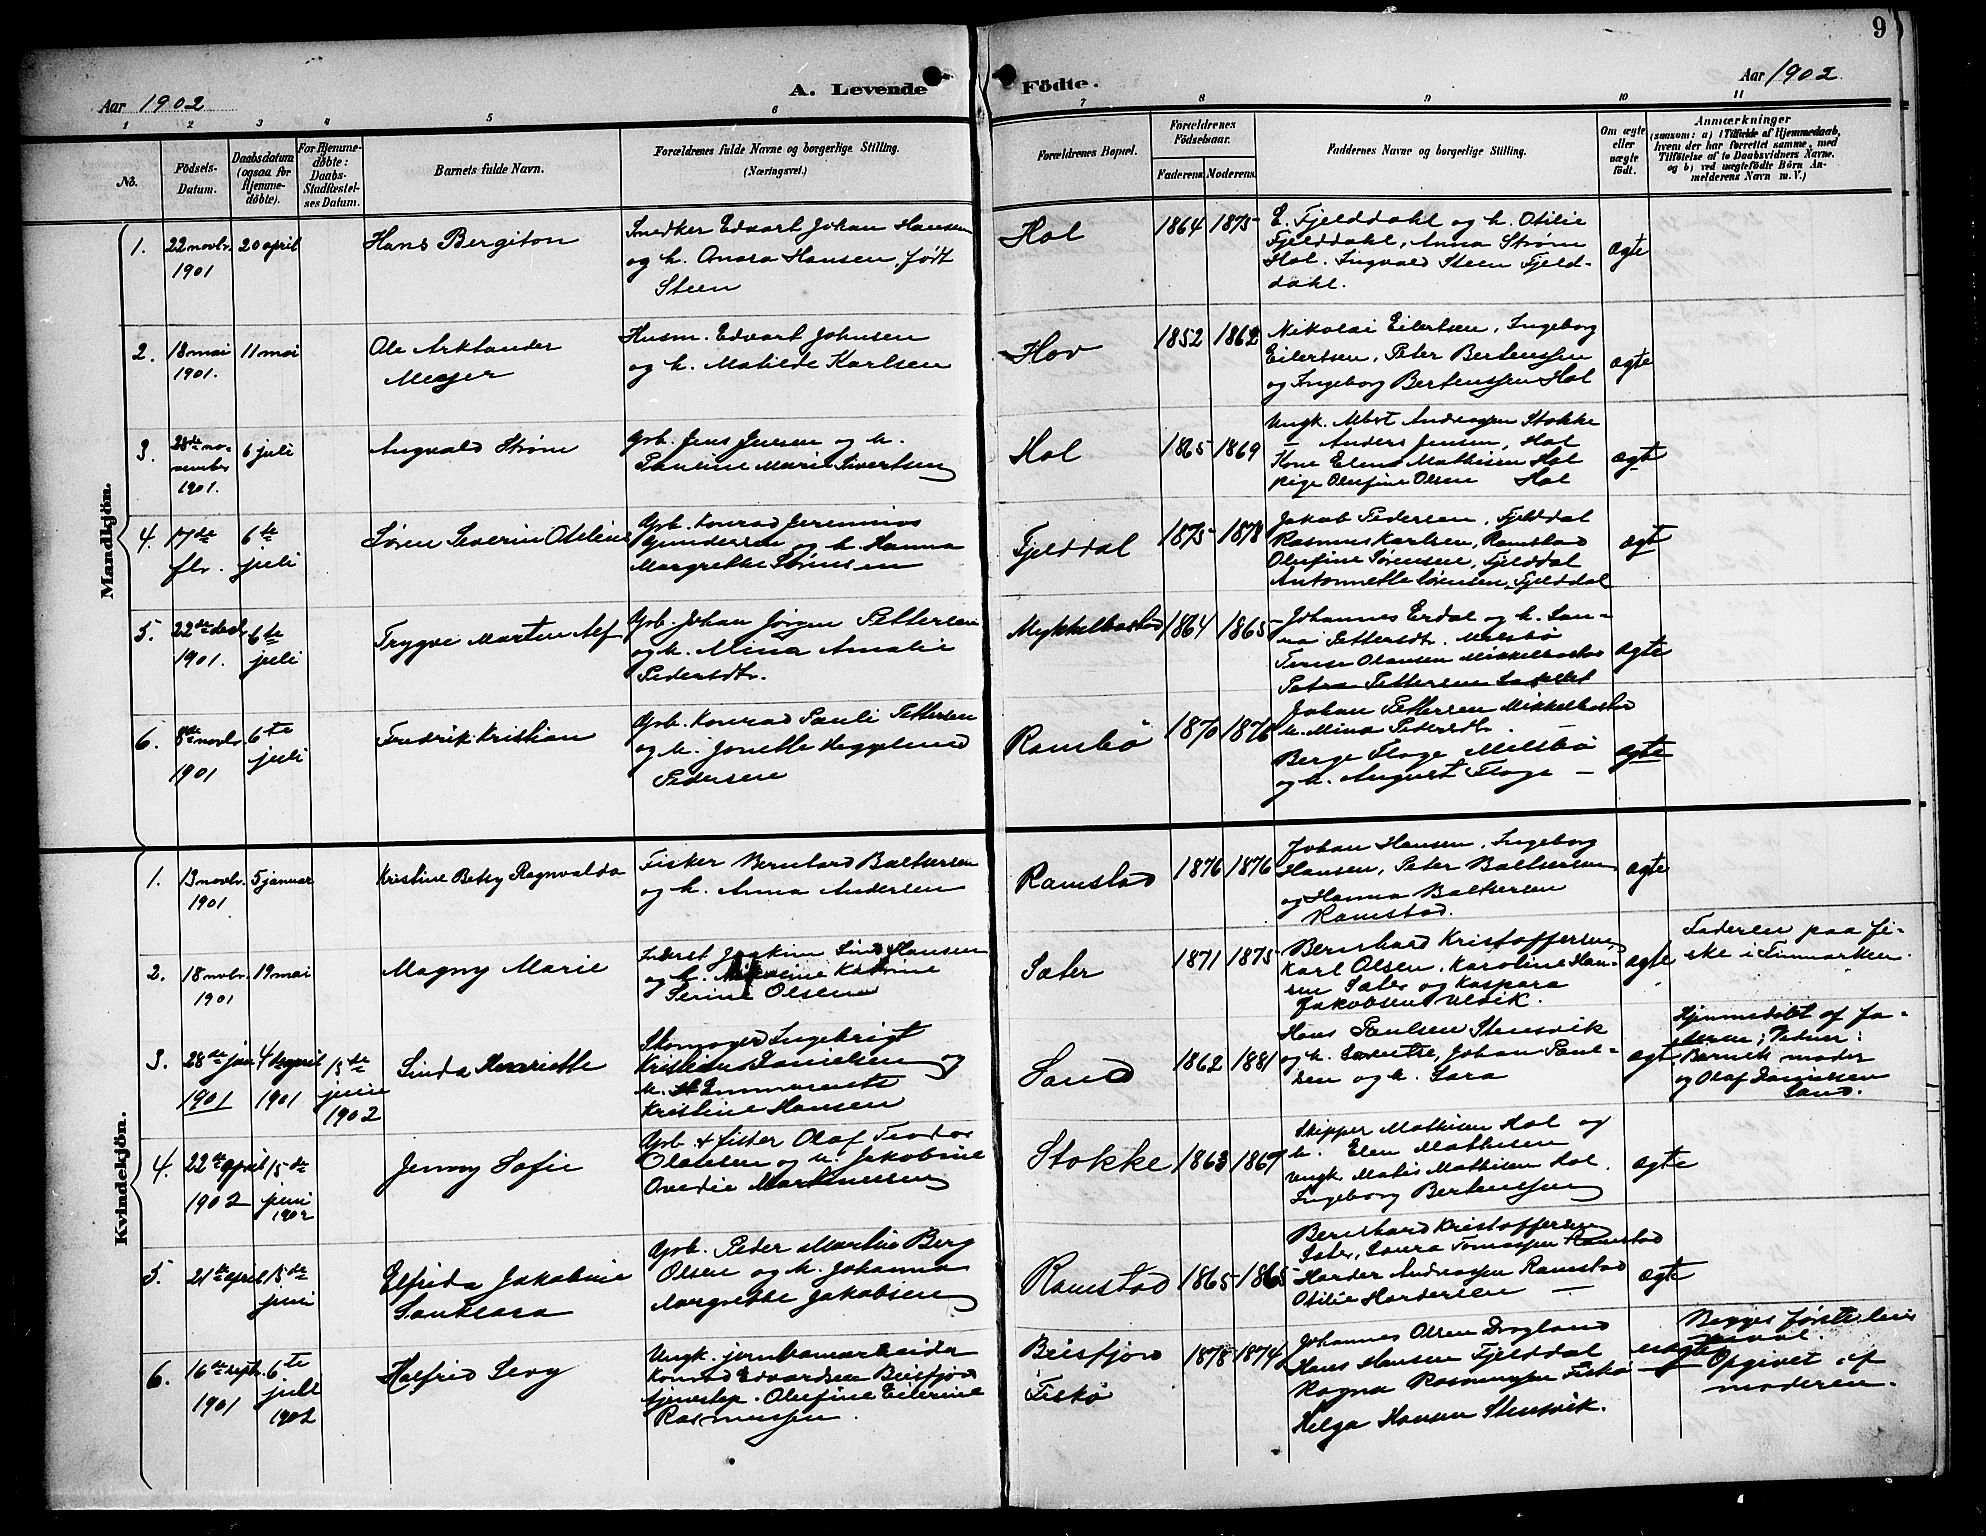 9
Aar 1902
A. Levende
Födte.
Aar 1902
1 2 3 4 5 6 7 8 9 10 11
No.
Födsels-
Datum.
Daabsdatum
(ogsaa for
Hjemme-
døbte).
For Hjemme-
døbte:
Daabs-
Stadfæstel-
ses Datum.
Barnets fulde Navn.
Forældrenes fulde Navne og borgerlige Stilling.
(Næringsvei.)
Forældrenes Bopæl.
Forældrenes
Födselsaar.
Faderens. Moderens.
Faddernes Navne og borgerlige Stilling.
Om ægte
eller
uægte
født.
Anmærkninger
(saasom: a) i Tilfælde af Hjemmedaab,
hvem der har forrettet samme, med
Tilföielse af to Daabsvidners Navne,
og b) ved uægtefødte Börn An-
melderens Navn m. V.)
Mandkjön.
1.
22 novbr.
1901
20 april
Hans Bergiton
Snedker Edvart Johan Hansen
og h. Hansen, født
Steen
Hol
1864 1875
E. Fjelddahl og h. Otilie
Fjelddahl, Anna Strøm
Hol. Ingvald Steen Fjeld-
dahl.
ægte
2.
18 mai
1901.
11 mai
Ole Arklander
Meyer
Husm. Edvart Johnsen
og h. Matilde Karlsen
Hov
1852 1862
Nikolai Eilertsen, Ingeborg
Eilertsen, Peter Bertenssen
og Ingeborg Bertenssen Hol
ægte
3.
28de no-
vember
1901.
6 juli
Angvald Strøm
Gbr. Jens Jensen og h.
Pauline Marie Sivertsen
Hol
1865 1869
Ungk. Albert Andreassen Stokke
— Anders Jensen, Hol
Kone Elena Mathisen Hol
Pige Olufine Olsen Hol
ægt
4.
17de
fbr.
6te
juli
Søren Severin Otelius
Gbr. Konrad Jeremias
Gundersen og h. Hanna
Margrethe Sørensen
Fjelddal
1875 1878
Jakob Pedersen, Fjelddal
Rasmus Karlsen, Ramstad
Olufine Sørensen, Fjelddal
Antonnette Sørensen, Fjelddal
ægt
5.
22de decbr.
1901.
6te
juli
Trygve Marten Alf
Gbr. Johan Jørgen Pettersen
og h. Mina Amalie
Pedersdtr.
Mykkelbostad
1864 1865
Johannes Erdal og h. San-
na Pettersdtr. Melsbø
Terese Olausen Mikkelbostad
Petra Pettersen
ægte
6.
8de novbr.
1901
6te
juli
Fredrik Kristian
Gbr. Konrad Pauli Pettersen
og h. Jonette
Pedersen
Rambø
1870 1876
Johan Pettersen Mikkelbostad
h. Mina Pedersdtr.
Berge Floge Melsbø
og h. August Floge —
ægte
Kvindekjön.
1.
13 novbr.
1901
5 januar
Kristine Betsy Ragnvalda
Fisker Bernhard Baltsersen
og h. Anna Andersen
Ramstad
1876 1876
Johan Hansen, Ingeborg
Hansen, Peter Baltsersen
og Hanna Baltsersen
Ramstad.
ægte
2.
18 novbr.
1901
19 mai
Magny Marie
Inderst Joakim Hansen
og h.
Serine Olsen
Sæter
1871 1875
Bernhard Kristoffersen
Karl Olsen, Karoline Han-
sen Sæter og Kaspara
Jakobsen Ulvik.
ægte
Faderen paa fi-
ske i Finmarken.
3.
28de jan
1901
4de april
1901
15de
juni
1902
Linda Henriette
Skomager Ingebrigt
Kristian Danielsen og
h. Emmerentse
Kristine Hansen
Sand
1862 1881
Hans Paulsen Stensvik
og h. Laurentse, Johan Paul-
sen og h. Sara
ægt
Hjemmedøbt af fa-
deren; Vidner:
Barnets moder
og Olaf Danielsen
Sand.
4.
22de april
1902
15de
juni
1902
Jenny Sofie
Gbr. + fisker Olaf Teodor
Olausen og h. Jakobine
Ovedie Martinussen
Stokke
1863 1867
Skipper Mathisen Hol og
h. Elen Mathisen
Ungk. Matis Mathisen Hol.
Ingeborg Bertenssen
ægte
5.
21de april
15de
juni
Elfrida Jakobine
Sanklara
Gbr. Peder Martin Berg
Olsen og h. Johanna
Margrethe Jakobsen
Ramstad
1865 1865
Bernhard Kristoffersen
Sæter, Laura Tomassen Ramstad
Harder Andreassen Ramstad
Otilie Hardersen —
ægte
6.
16de septr.
1901
6te
juli
1902
Halfrid Levy
Ungk. jernbanearbeider
Konrad Edvardsen Beisfjord
tjenestep. Olufine Eilerine
Rasmussen.
Beisfjord
Fiskø
1878 1874
Johannes Olsen Dragland
Hans Hansen Fjelddal
Ragna Rasmussen Fiskø
Helga Hansen Stensvik.
uægte
Begges første leier-
maal.
Opgivet af
moderen.